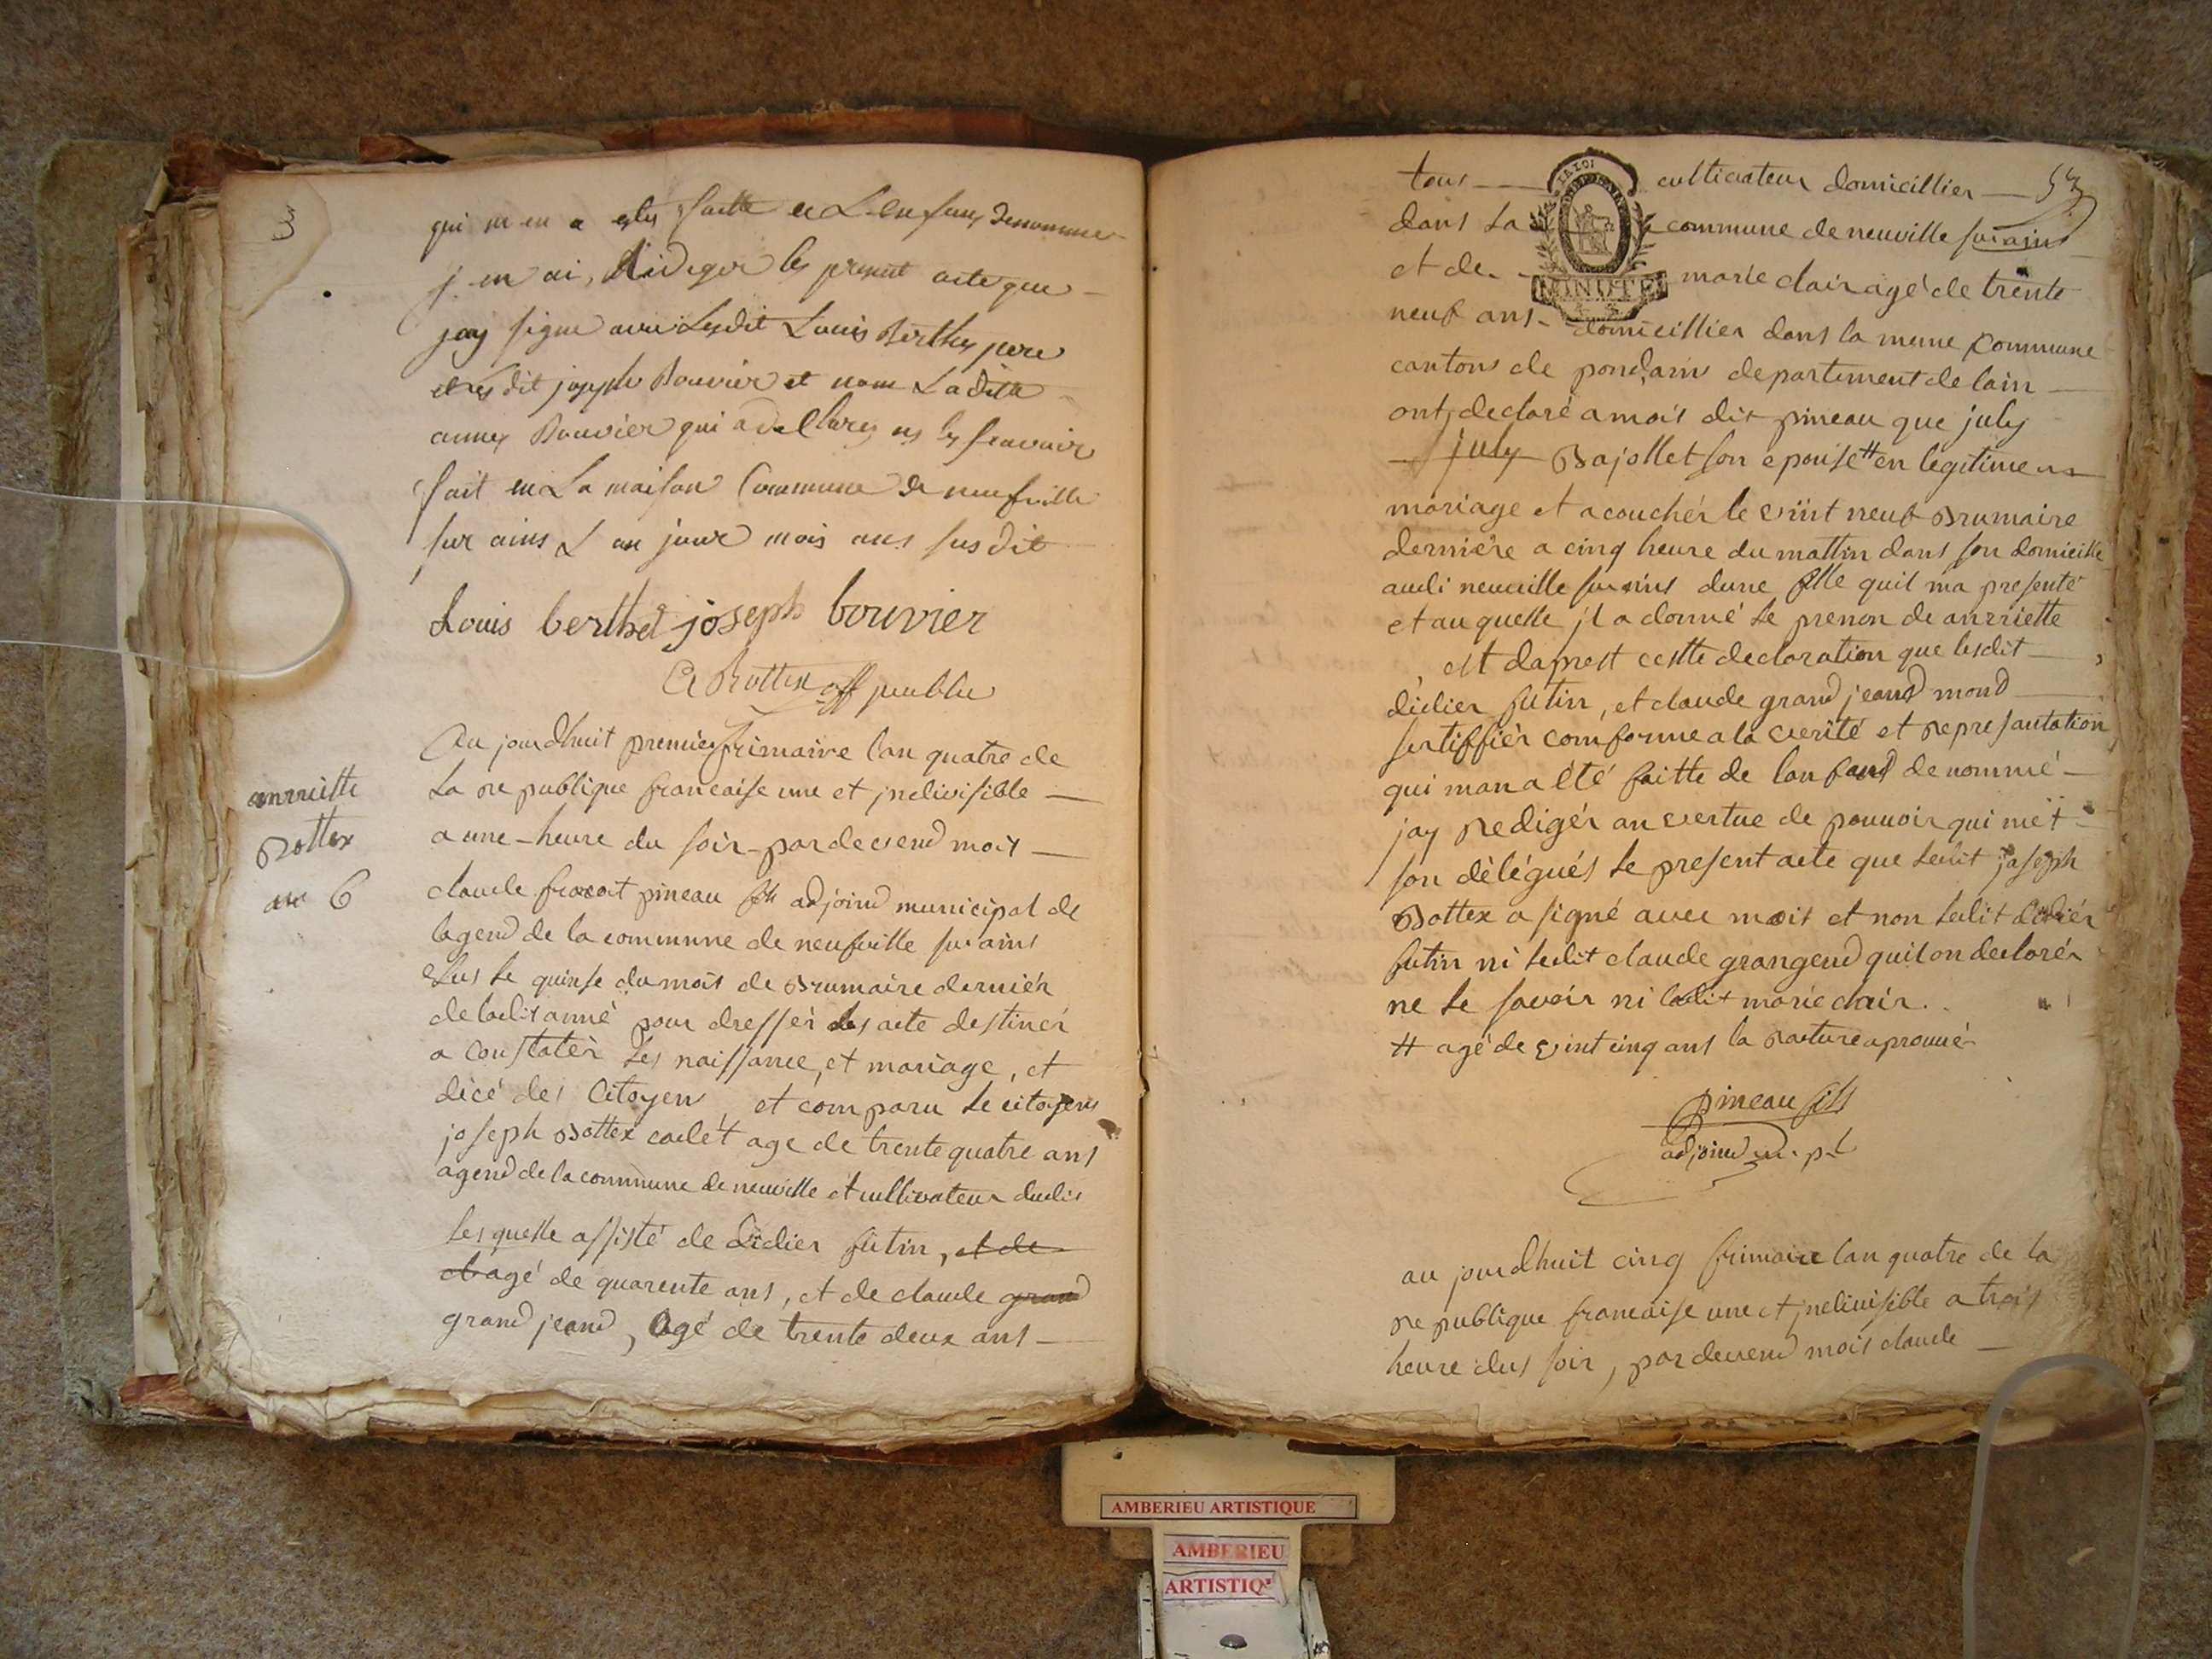 qui m en a estes faitte et L enfans denommer
j en ai, Rideger les present acte que
jay signe avec Lesdit Louis Berthet pere
et les dit joseph Bouvier et nom Laditte
annes Bouvier qui a de Clares ns les scavoir
fait en La maison Commune de neufville
sur ains L an jour mois ans susdit
Louis berthet joseph bouvier
Bottex off publie
anrriette
Bottex
no 6
Au jourdhuit premier frimaire lan quatre de
La re publique francaise une et jndivisible
a une heure du soir pardevend mois
claude pineau fils adjoind municipal de
lagend de la commune de neufville sur ains
eLus Le quinse du mois de Brumaire derniér
de ladit anné pour dressér des acte destinér
a Constatér Les naissance, et mariage, et
décé des Citoyen, et comparu Le citoyens
joseph Bottex cadét age de trente quatre ans
agend de la commune de neuville et cultivateur dudis
Lesquelle assisté de didier futin, et de
agé de quarente ans, et de claude grand
grand jeand, agé de trente deux ans
tous cultivateur domicillier 53
LA LOI
dans La commune de neuville sur ains
et de marie clair agé de trente
MINUTE
neuf ans domicillier dans la meme Commune
cantons de pondains departement de lain
ont declaré a mois dit pineau que july
july Bajollet son epouse # en legitime
mariage et acouchér le vint neuf Brumaire
derniére a cinq heure du mattin dans son domicille
audi neuville sur ains dune fille quil ma presenté
et au quelle jl a donné Le prenon de anrriette
est daprest cestte declaration que lesdit
didier futin, et claude grand jeand mond
sertiffiér comforme a la verité et represantation
qui man a été faitte de lanfand denommé
jay Redigér an vertue de pouvoir qui mét
son délégués Le present acte que Ledit joseph
Bottex a signé avec moit et non Ledit didiér
futin ni Ledit claude grangend quil on declarér
ne Le savoir ni ladit marie clair.
# agé de vint cinq ans la Rature aprouvér
pineau fils
adjoind m. pl
au jourdhuit cinq frimaire lan quatre de la
re publique francaise une et jndivisible a trois
heure dus soir, pardevend mois claude
AMBERIEU ARTISTIQUE
AMBERIEU
ARTISTIQ